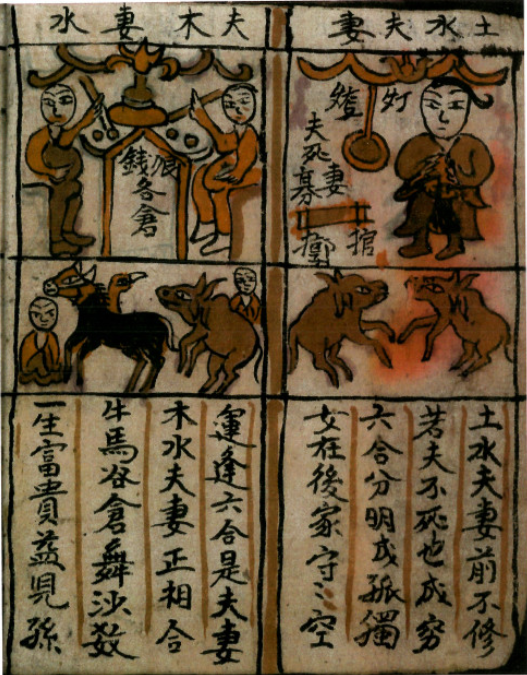 土水夫妻
灯
妻
棺
夫死墓
土水夫妻前不修
若夫不死也成穷
六合分明成孤獨
女在後家守〻空
夫木妻水
銀
錢各倉
運逢六合是夫妻
木水夫妻正相合
牛馬谷倉舞沙数
一生富貴益兒孫